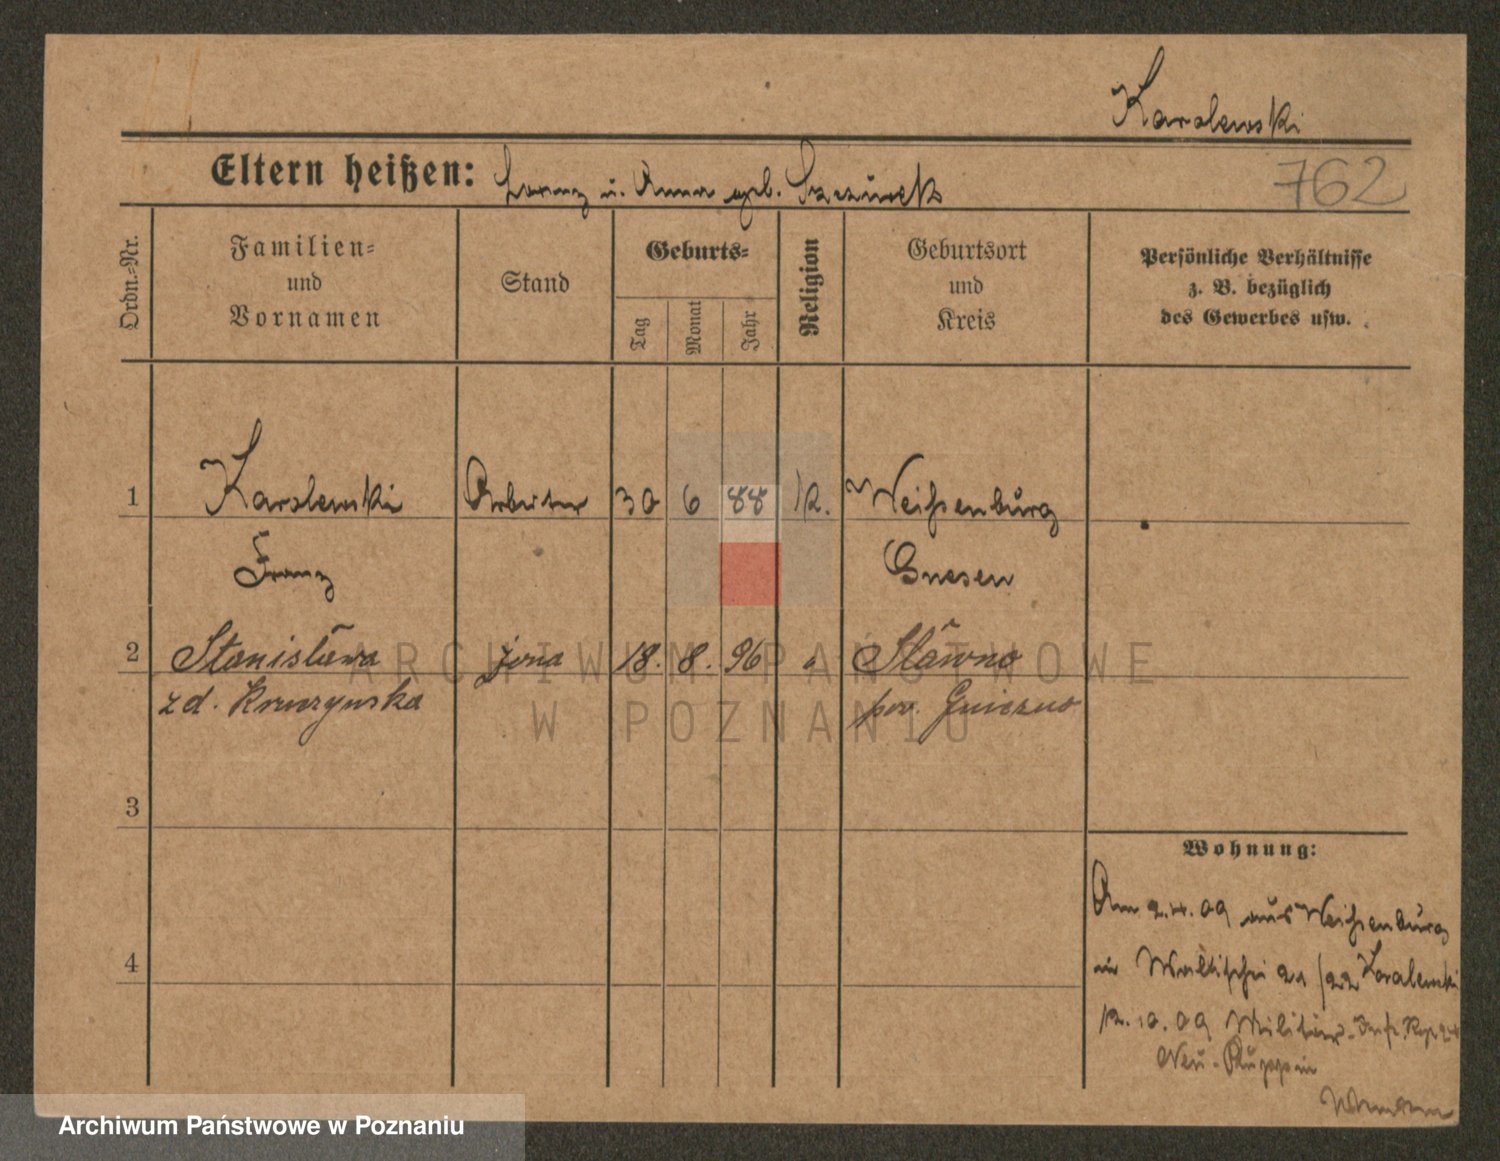 Karalewski
Eltern heißen: Franz u. Anna geb. Szczurek
762
Ordn.-Nr.
Familien-
und
Vornamen
Stand
Geburts-
Tag
Monat
Jahr
Religion
Geburtsort
und
Kreis
Persönliche Verhältnisse
z. B. bezüglich
des Gewerbes usw.
1 Karalewski Arbeiter 30 6 88 k. Weißenburg
Franz Gnesen
2 Stanisława żona 18. 8. 96 " Sławno
z d. pow. Gniezno
3
4
Wohnung:
Am 2.4.09 aus Weißenburg
in Wallischei 21 Karalewski
10.09 Militär-Inft. Rgt. 24
Neu-Ruppin
ARCHIWUM PAŃSTWOWE
W POZNANIU
Archiwum Państwowe w Poznaniu